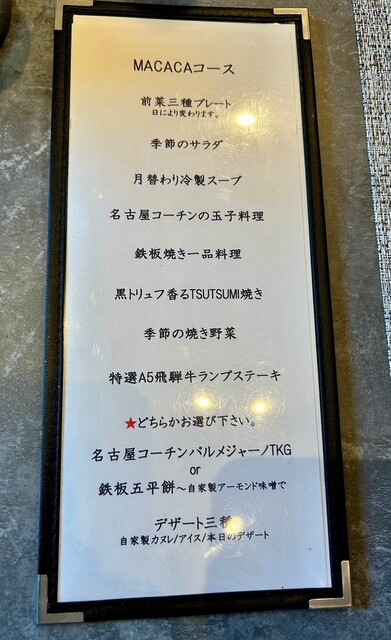 MACACAコース
前菜三種プレート
日により変わります。
季節のサラダ
月替わり冷製スープ
名古屋コーチンの玉子料理
鉄板焼き一品料理
黒トリュフ香るTSUTSUMI焼き
季節の焼き野菜
特選A5飛騨牛ランプステーキ
★どちらかお選び下さい。
名古屋コーチンパルメジャーノTKG
or
鉄板五平餅～自家製アーモンド味噌で
デザート三種
自家製カヌレ/アイス/本日のデザート